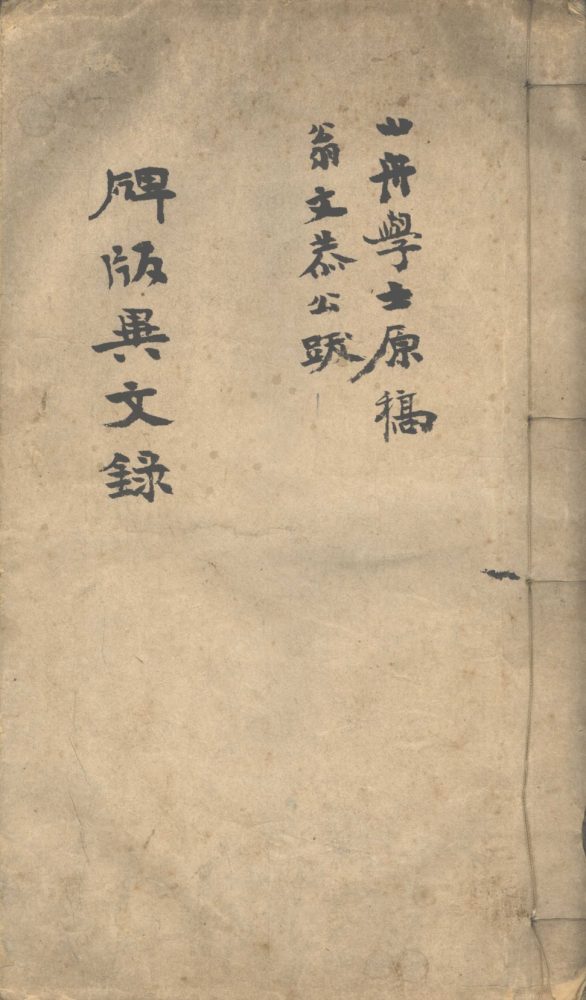 山舟學士原稿
翁文恭公跋
碑版異文録